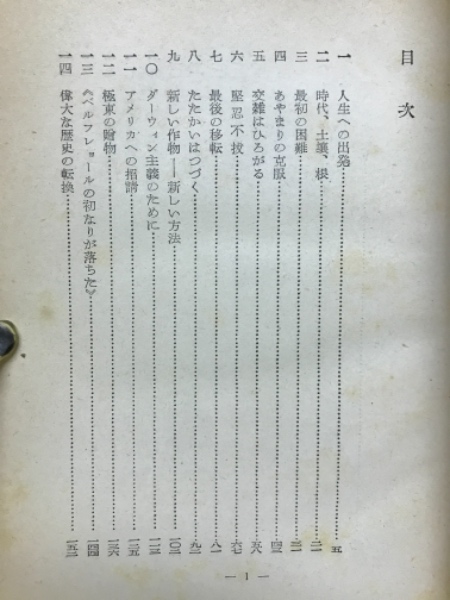 目次
一 人生への出発……五
二 時代、土壌、根……二一
三 最初の困難……三一
四 あやまりの克服……四三
五 交雑はひろがる……五八
六 堅忍不抜……六七
七 最後の移転……八一
八 たたかいはつづく……九二
九 新しい作物――新しい方法……一〇三
一〇 ダーウィン主義のために……一一三
一一 アメリカへの招請……一二五
一二 極東の贈物……一三六
一三 《ベルフレョールの初なりが落ちた》……一四四
一四 偉大な歴史の転換……一五二
— 1 —